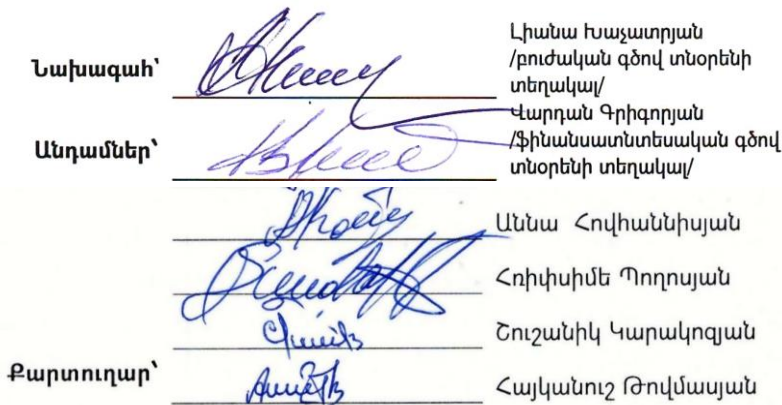 Նախագահ՝
Լիանա Խաչատրյան
/բուժական գծով տնօրենի
տեղակալ/
Անդամներ՝
Վարդան Գրիգորյան
/ֆինանսատնտեսական գծով
տնօրենի տեղակալ/
Աննա Հովհաննիսյան
Հռիփսիմե Պողոսյան
Շուշանիկ Կարակոզյան
Քարտուղար՝
Հայկանուշ Թովմասյան